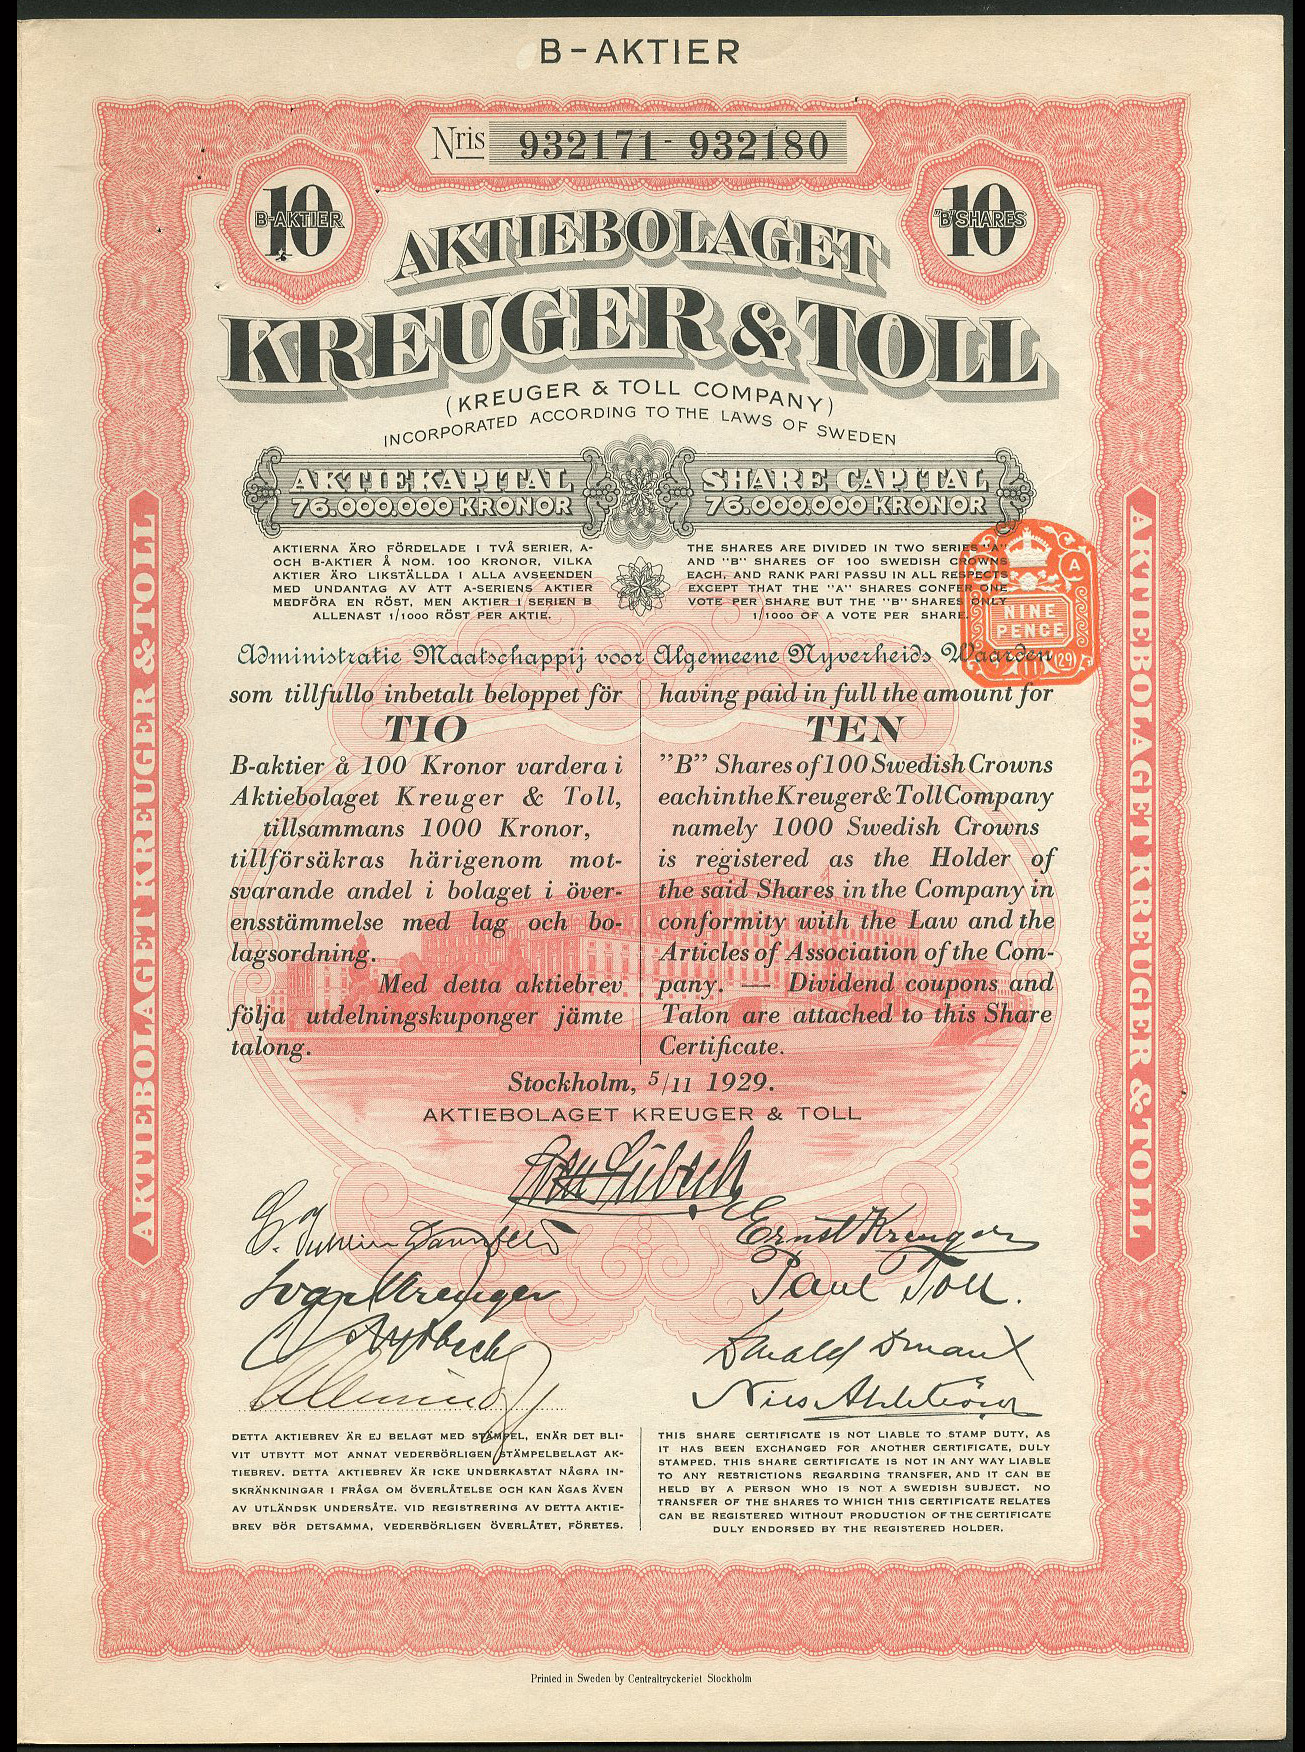 B-AKTIER
Nris 932171 - 932180
10
B-AKTIER
10
"B" SHARES
AKTIEBOLAGET
KREUGER & TOLL
(KREUGER & TOLL COMPANY)
INCORPORATED ACCORDING TO THE LAWS OF SWEDEN
AKTIEKAPITAL
76.000.000 KRONOR
SHARE CAPITAL
76.000.000 KRONOR
AKTIERNA ÄRO FÖRDELADE I TVÅ SERIER, A-
OCH B-AKTIER Å NOM. 100 KRONOR, VILKA
AKTIER ÄRO LIKSTÄLLDA I ALLA AVSEENDEN
MED UNDANTAG AV ATT A-SERIENS AKTIER
MEDFÖRA EN RÖST, MEN AKTIER I SERIEN B
ALLENAST 1/1000 RÖST PER AKTIE.
THE SHARES ARE DIVIDED IN TWO SERIES "A"
AND "B" SHARES OF 100 SWEDISH CROWNS
EACH, AND RANK PARI PASSU IN ALL RESPECTS
EXCEPT THAT THE "A" SHARES CONFER ONE
VOTE PER SHARE BUT THE "B" SHARES ONLY
1/1000 OF A VOTE PER SHARE.
A
NINE
PENCE
29
Administratie Maatschappij voor Algemeene Nyverheids Waarden
som tillfullo inbetalt beloppet för
TIO
B-aktier å 100 Kronor vardera i
Aktiebolaget Kreuger & Toll,
tillsammans 1000 Kronor,
tillförsäkras härigenom mot-
svarande andel i bolaget i över-
ensstämmelse med lag och bo-
lagsordning.
Med detta aktiebrev
följa utdelningskuponger jämte
talong.
having paid in full the amount for
TEN
"B" Shares of 100 Swedish Crowns
each in the Kreuger & Toll Company
namely 1000 Swedish Crowns
is registered as the Holder of
the said Shares in the Company in
conformity with the Law and the
Articles of Association of the Com-
pany. — Dividend coupons and
Talon are attached to this Share
Certificate.
Stockholm, 5/11 1929.
AKTIEBOLAGET KREUGER & TOLL
Ernst Kreuger
Ivar Kreuger
Paul Toll.
Nils Ahlström
DETTA AKTIEBREV ÄR EJ BELAGT MED STÄMPEL, ENÄR DET BLI-
VIT UTBYTT MOT ANNAT VEDERBÖRLIGEN STÄMPELBELAGT AK-
TIEBREV. DETTA AKTIEBREV ÄR ICKE UNDERKASTAT NÅGRA IN-
SKRÄNKNINGAR I FRÅGA OM ÖVERLÅTELSE OCH KAN ÄGAS ÄVEN
AV UTLÄNDSK UNDERSÅTE. VID REGISTRERING AV DETTA AKTIE-
BREV BÖR DETSAMMA, VEDERBÖRLIGEN ÖVERLÅTET, FÖRETES.
THIS SHARE CERTIFICATE IS NOT LIABLE TO STAMP DUTY, AS
IT HAS BEEN EXCHANGED FOR ANOTHER CERTIFICATE, DULY
STAMPED. THIS SHARE CERTIFICATE IS NOT IN ANY WAY LIABLE
TO ANY RESTRICTIONS REGARDING TRANSFER, AND IT CAN BE
HELD BY A PERSON WHO IS NOT A SWEDISH SUBJECT. NO
TRANSFER OF THE SHARES TO WHICH THIS CERTIFICATE RELATES
CAN BE REGISTERED WITHOUT PRODUCTION OF THE CERTIFICATE
DULY ENDORSED BY THE REGISTERED HOLDER.
AKTIEBOLAGET KREUGER & TOLL
AKTIEBOLAGET KREUGER & TOLL
Printed in Sweden by Centraltryckeriet Stockholm